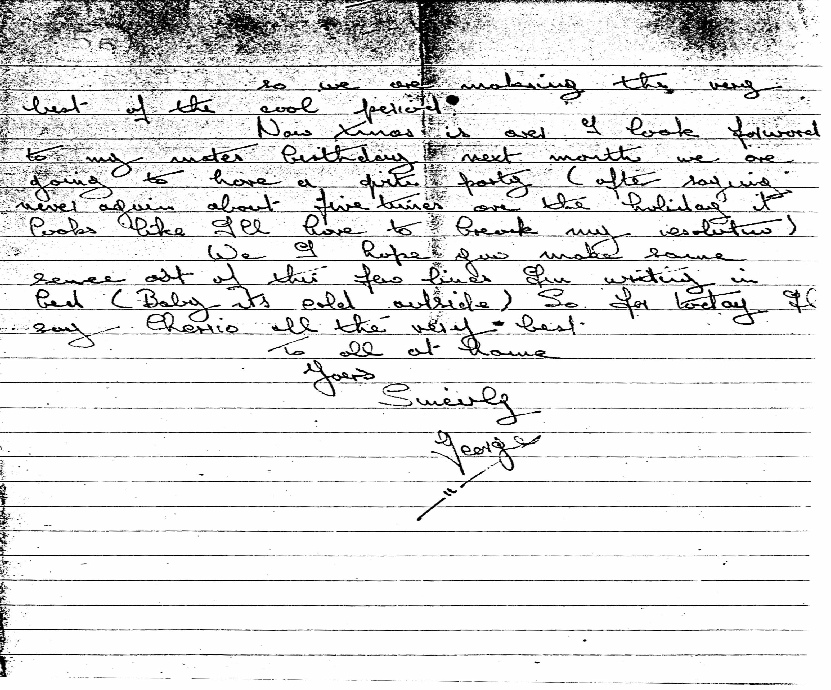 so we are making the very
best of the cool period.
Now Xmas is over I look forward
to my mates birthday next month we are
going to have a quite party (after saying
never again about five times over the holiday it
looks like I'll have to break my resolution)
We I hope you make some
sence out of this few lines I'm writing in
bed (Baby its cold outside) So for today I'll
say Cheerio all the very best.
To all at home
Yours
Sincerly
George